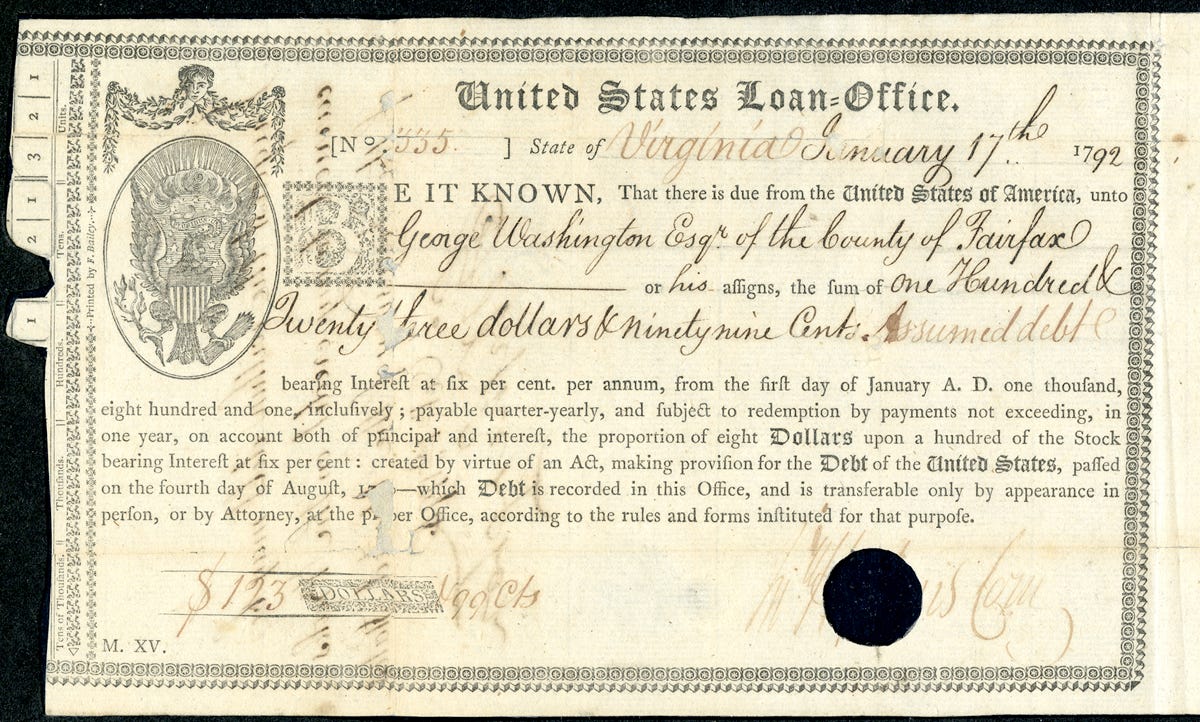 United States Loan-Office.
[No. 335. ] State of Virginia January 17th 1792
BE IT KNOWN, That there is due from the United States of America, unto
George Washington Esqr. of the County of Fairfax
or his assigns, the sum of one Hundred &
Twenty three dollars & ninety nine Cents. Assumed debt
bearing Interest at six per cent. per annum, from the first day of January A. D. one thousand,
eight hundred and one, inclusively; payable quarter-yearly, and subject to redemption by payments not exceeding, in
one year, on account both of principal and interest, the proportion of eight Dollars upon a hundred of the Stock
bearing Interest at six per cent: created by virtue of an Act, making provision for the Debt of the United States, passed
on the fourth day of August, —which Debt is recorded in this Office, and is transferable only by appearance in
person, or by Attorney, at the proper Office, according to the rules and forms instituted for that purpose.
$ 123 DOLLARS 99 Cts
M. XV.
Tens of Thousands. Thousands. Hundreds. Tens. Units.
Printed by F. Bailey.
1 2 1 3 2 1